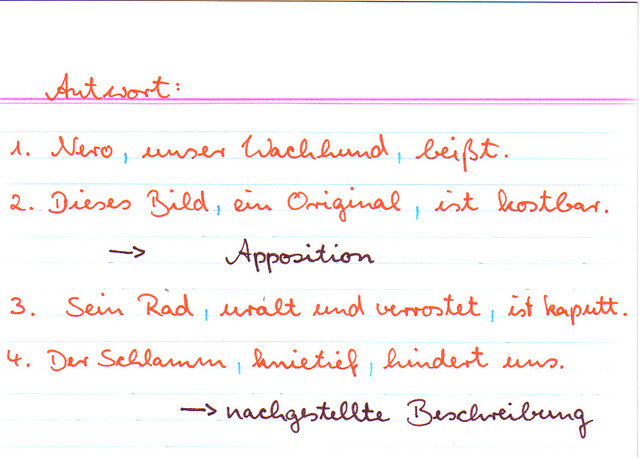 Antwort:
1. Nero, unser Wachhund, beißt.
2. Dieses Bild, ein Original, ist kostbar.
→ Apposition
3. Sein Rad, uralt und verrostet, ist kaputt.
4. Der Schlamm, knietief, hindert uns.
→ nachgestellte Beschreibung